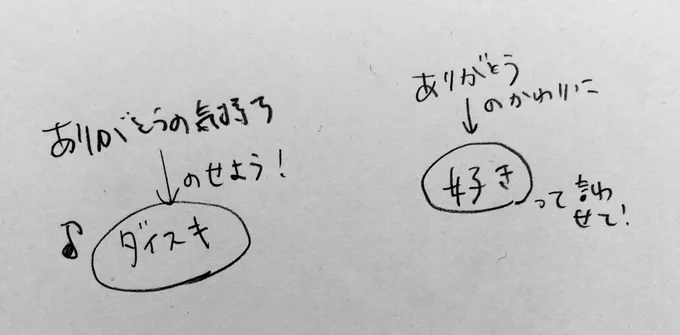 ありがとうの気持ち
のせよう!
♪ ダイスキ
ありがとう
のかわりに
好き
って言わ
せて!